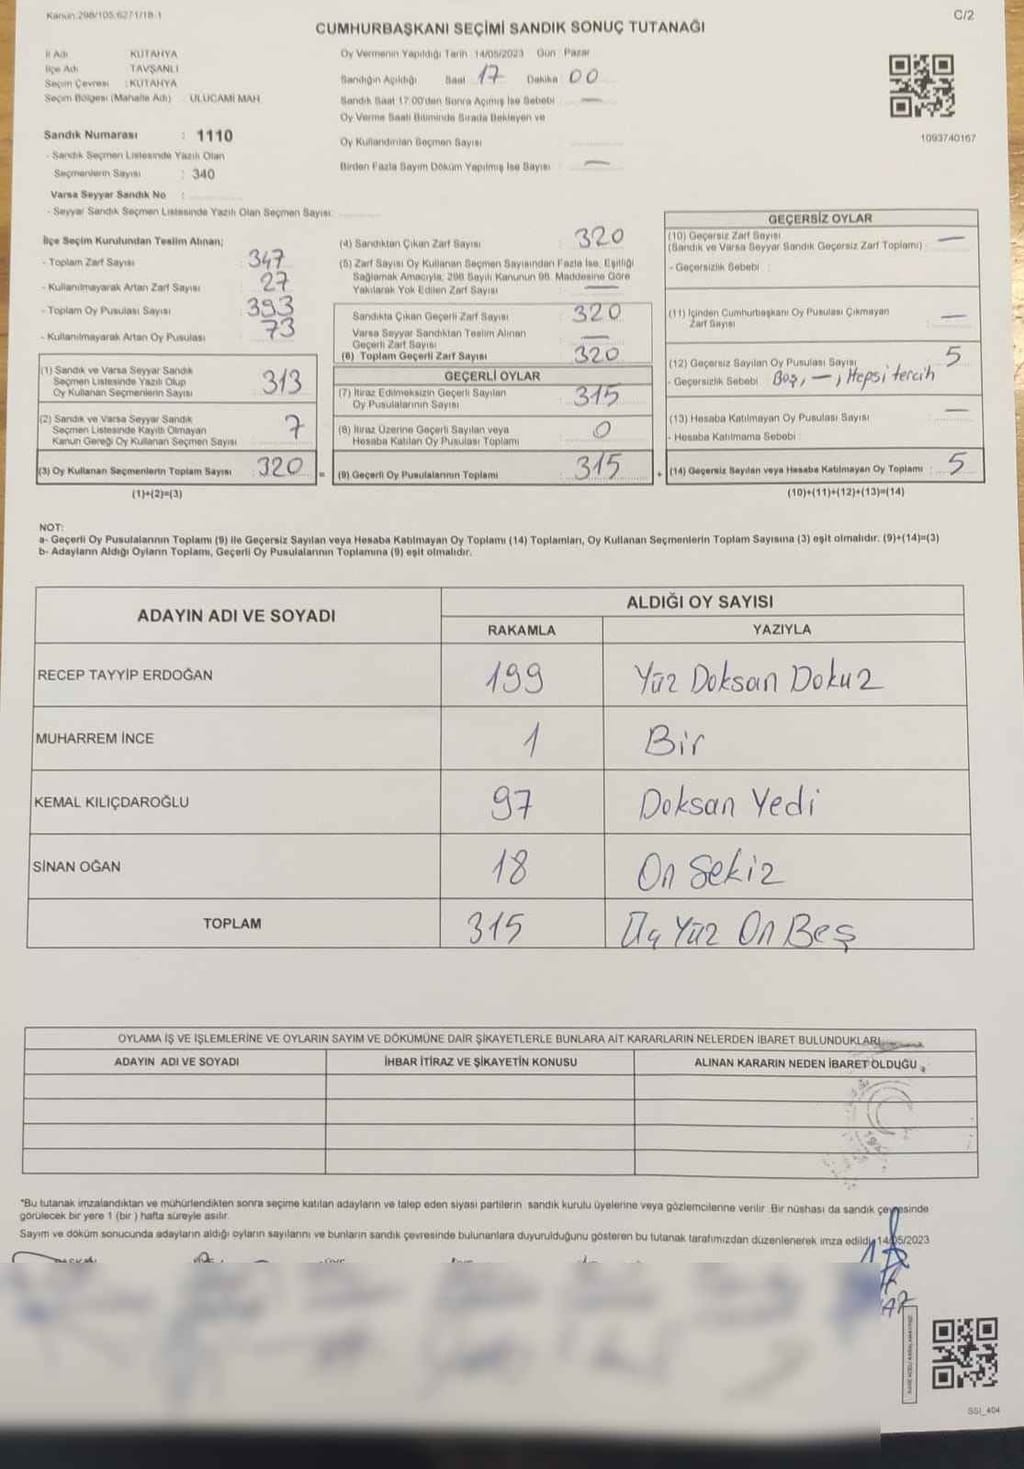 Kanun:298/105.6271/18.1
C/2
CUMHURBAŞKANI SEÇİMİ SANDIK SONUÇ TUTANAĞI
İl Adı KÜTAHYA
İlçe Adı TAVŞANLI
Seçim Çevresi :KÜTAHYA
Seçim Bölgesi (Mahalle Adı) : ULUCAMİ MAH.
Sandık Numarası : 1110
- Sandık Seçmen Listesinde Yazılı Olan
Seçmenlerin Sayısı : 340
Varsa Seyyar Sandık No :
- Seyyar Sandık Seçmen Listesinde Yazılı Olan Seçmen Sayısı:
Oy Vermenin Yapıldığı Tarih 14/05/2023 Gün Pazar
Sandığın Açıldığı Saat 17 Dakika 00
Sandık Saat 17:00'den Sonra Açılmış İse Sebebi —
Oy Verme Saati Bitiminde Sırada Bekleyen ve
Oy Kullandırılan Seçmen Sayısı
Birden Fazla Sayım Döküm Yapılmış İse Sayısı —
1093740167
İlçe Seçim Kurulundan Teslim Alınan;
- Toplam Zarf Sayısı 347
- Kullanılmayarak Artan Zarf Sayısı 27
- Toplam Oy Pusulası Sayısı 393
- Kullanılmayarak Artan Oy Pusulası 73
(1) Sandık ve Varsa Seyyar Sandık
Seçmen Listesinde Yazılı Olup
Oy Kullanan Seçmenlerin Sayısı 313
(2) Sandık ve Varsa Seyyar Sandık
Seçmen Listesinde Kayıtlı Olmayan
Kanun Gereği Oy Kullanan Seçmen Sayısı 7
(3) Oy Kullanan Seçmenlerin Toplam Sayısı : 320 =
(1)+(2)=(3)
(4) Sandıktan Çıkan Zarf Sayısı : 320
(5) Zarf Sayısı Oy Kullanan Seçmen Sayısından Fazla İse, Eşitliği
Sağlamak Amacıyla, 298 Sayılı Kanunun 98. Maddesine Göre
Yakılarak Yok Edilen Zarf Sayısı —
Sandıkta Çıkan Geçerli Zarf Sayısı : 320
Varsa Seyyar Sandıktan Teslim Alınan
Geçerli Zarf Sayısı —
(6) Toplam Geçerli Zarf Sayısı 320
GEÇERLİ OYLAR
(7) İtiraz Edilmeksizin Geçerli Sayılan
Oy Pusulalarının Sayısı : 315
(8) İtiraz Üzerine Geçerli Sayılan veya
Hesaba Katılan Oy Pusulası Toplamı : 0
(9) Geçerli Oy Pusulalarının Toplamı : 315 +
GEÇERSİZ OYLAR
(10) Geçersiz Zarf Sayısı
(Sandık ve Varsa Seyyar Sandık Geçersiz Zarf Toplamı) : —
- Geçersizlik Sebebi :
(11) İçinden Cumhurbaşkanı Oy Pusulası Çıkmayan
Zarf Sayısı : —
(12) Geçersiz Sayılan Oy Pusulası Sayısı : 5
- Geçersizlik Sebebi Boş, —, Hepsi tercih
(13) Hesaba Katılmayan Oy Pusulası Sayısı : —
- Hesaba Katılmama Sebebi :
(14) Geçersiz Sayılan veya Hesaba Katılmayan Oy Toplamı : 5
(10)+(11)+(12)+(13)=(14)
NOT:
a- Geçerli Oy Pusulalarının Toplamı (9) ile Geçersiz Sayılan veya Hesaba Katılmayan Oy Toplamı (14) Toplamları, Oy Kullanan Seçmenlerin Toplam Sayısına (3) eşit olmalıdır. (9)+(14)=(3)
b- Adayların Aldığı Oyların Toplamı, Geçerli Oy Pusulalarının Toplamına (9) eşit olmalıdır.
ADAYIN ADI VE SOYADI
ALDIĞI OY SAYISI
RAKAMLA YAZIYLA
RECEP TAYYİP ERDOĞAN 199 Yüz Doksan Dokuz
MUHARREM İNCE 1 Bir
KEMAL KILIÇDAROĞLU 97 Doksan Yedi
SİNAN OĞAN 18 On Sekiz
TOPLAM 315 Üç Yüz On Beş
OYLAMA İŞ VE İŞLEMLERİNE VE OYLARIN SAYIM VE DÖKÜMÜNE DAİR ŞİKAYETLERLE BUNLARA AİT KARARLARIN NELERDEN İBARET BULUNDUKLARI
ADAYIN ADI VE SOYADI İHBAR İTİRAZ VE ŞİKAYETİN KONUSU ALINAN KARARIN NEDEN İBARET OLDUĞU
*Bu tutanak imzalandıktan ve mühürlendikten sonra seçime katılan adayların ve talep eden siyasi partilerin sandık kurulu üyelerine veya gözlemcilerine verilir. Bir nüshası da sandık çevresinde
görülecek bir yere 1 (bir ) hafta süreyle asılır.
Sayım ve döküm sonucunda adayların aldığı oyların sayılarını ve bunların sandık çevresinde bulunanlara duyurulduğunu gösteren bu tutanak tarafımızdan düzenlenerek imza edildi. 14/05/2023
SSI_404